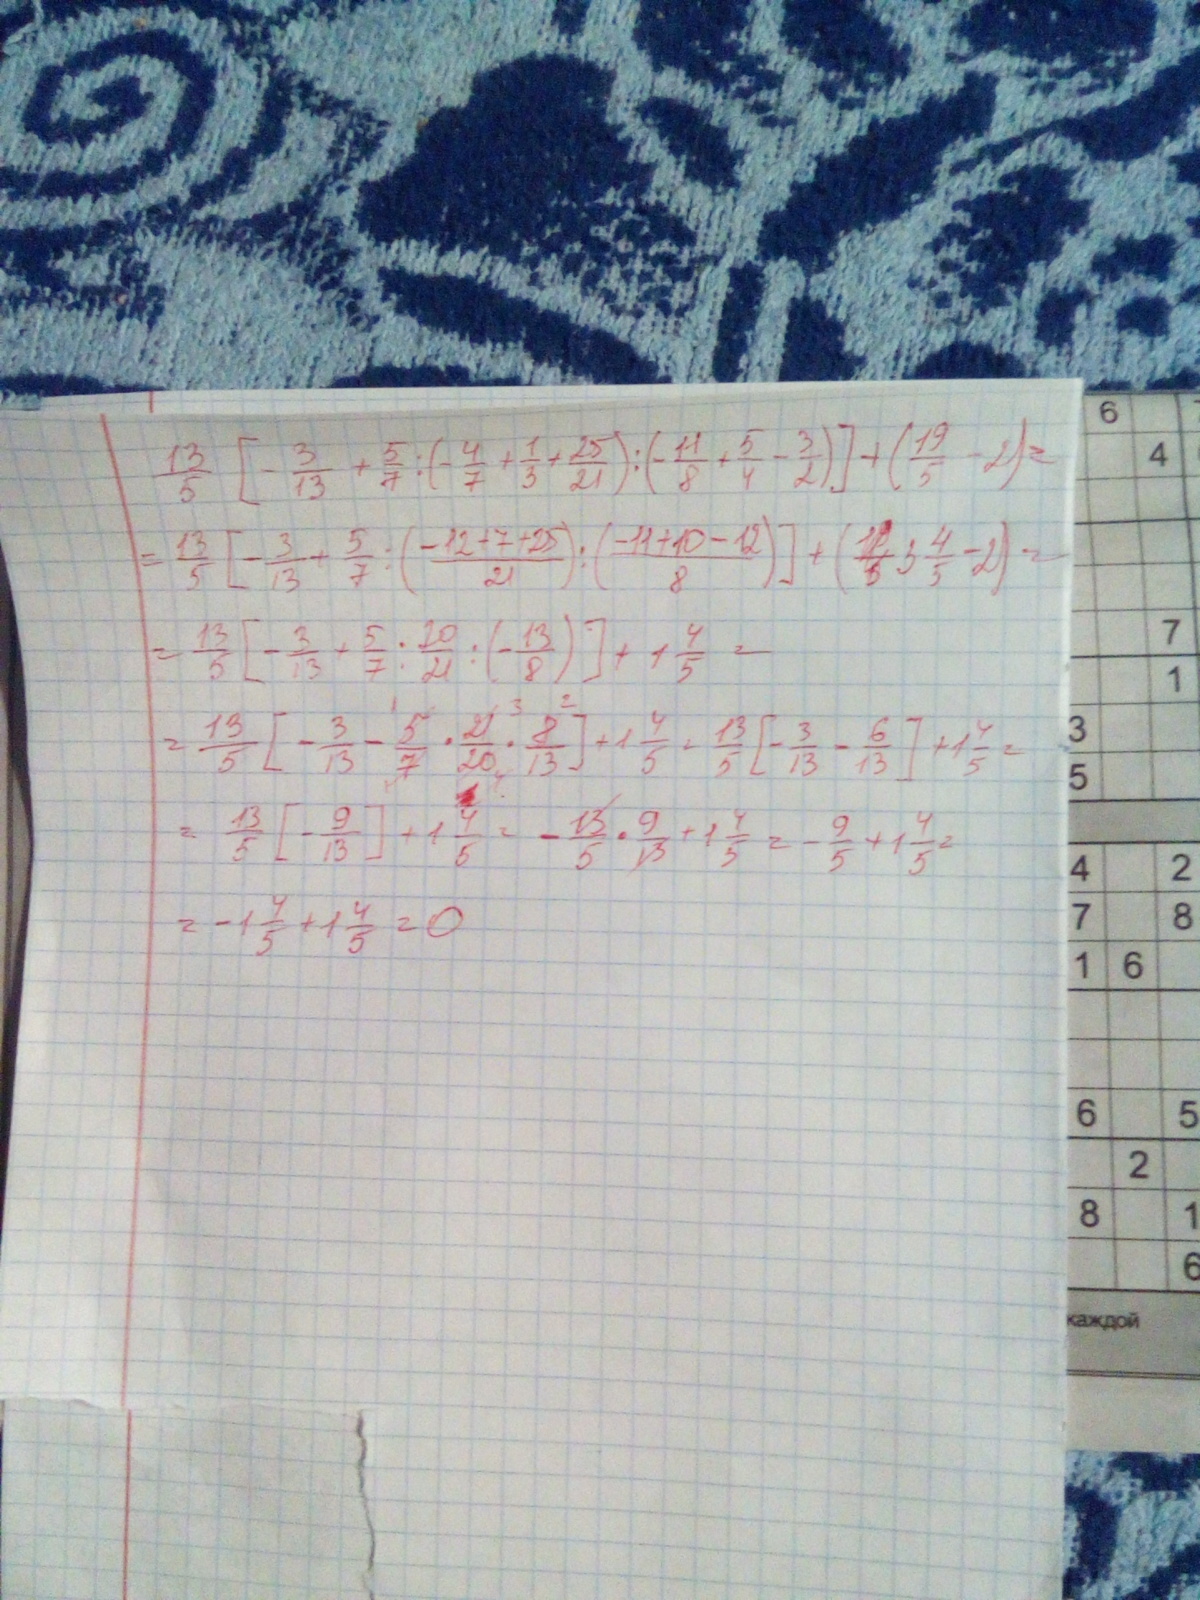 13/5 [-3/13 + 5/7 : (-4/7 + 1/3 + 25/21) : (-11/8 + 5/4 - 3/2)] + (19/5 - 2) =
= 13/5 [-3/13 + 5/7 : (-12+7+25)/21 : (-11+10-12)/8] + (3 4/5 - 2) =
= 13/5 [-3/13 + 5/7 : 20/21 : (-13/8)] + 1 4/5 =
= 13/5 [-3/13 - 5/7 · 21/20 · 8/13] + 1 4/5 = 13/5 [-3/13 - 6/13] + 1 4/5 =
= 13/5 [-9/13] + 1 4/5 = -13/5 · 9/13 + 1 4/5 = -9/5 + 1 4/5 =
= -1 4/5 + 1 4/5 = 0
6
4
7
1
3
5
4 2
7 8
1 6
6 5
2
8 1
6
каждой